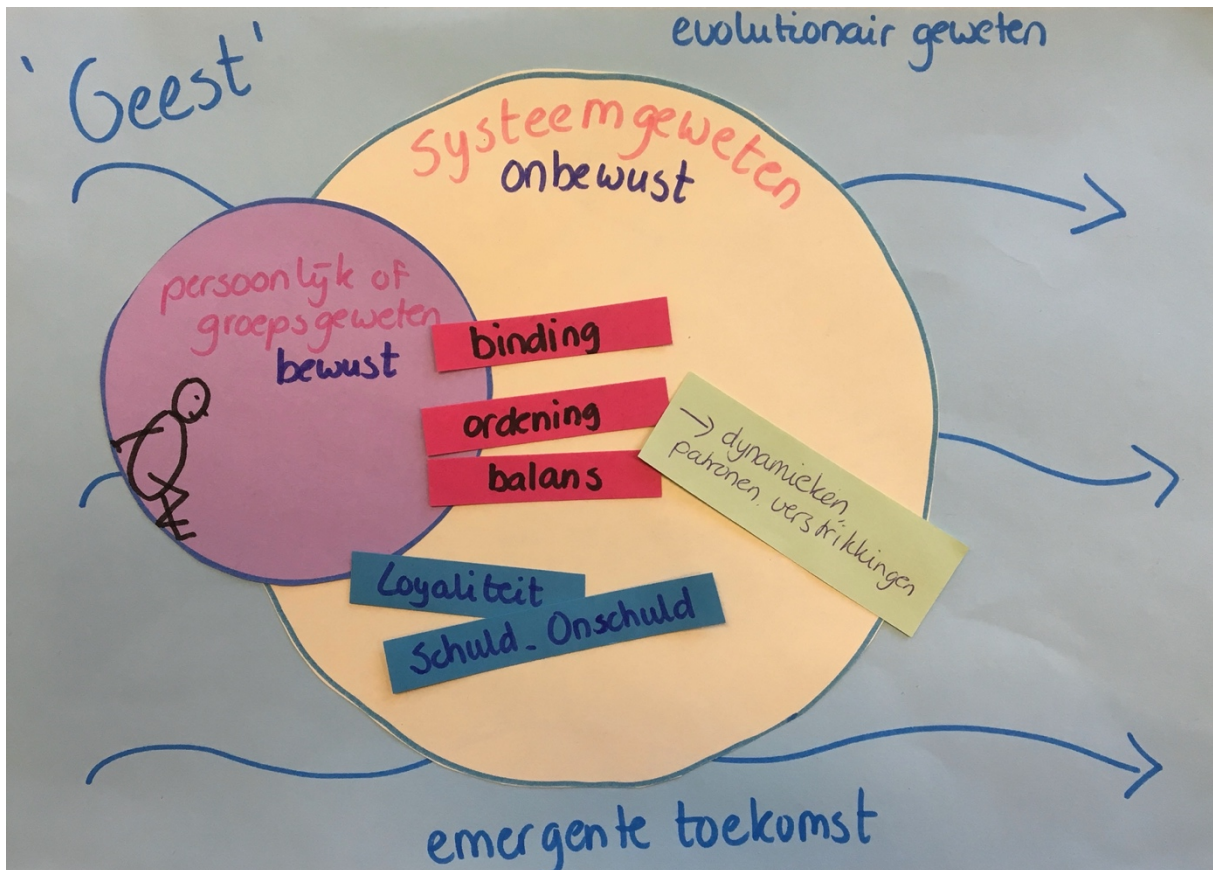 'Geest'
evolutionair geweten
systeemgeweten
onbewust
persoonlijk of
groepsgeweten
bewust
binding
ordening
balans
→ dynamieken,
patronen. verstrikkingen
Loyaliteit
Schuld - Onschuld
emergente toekomst